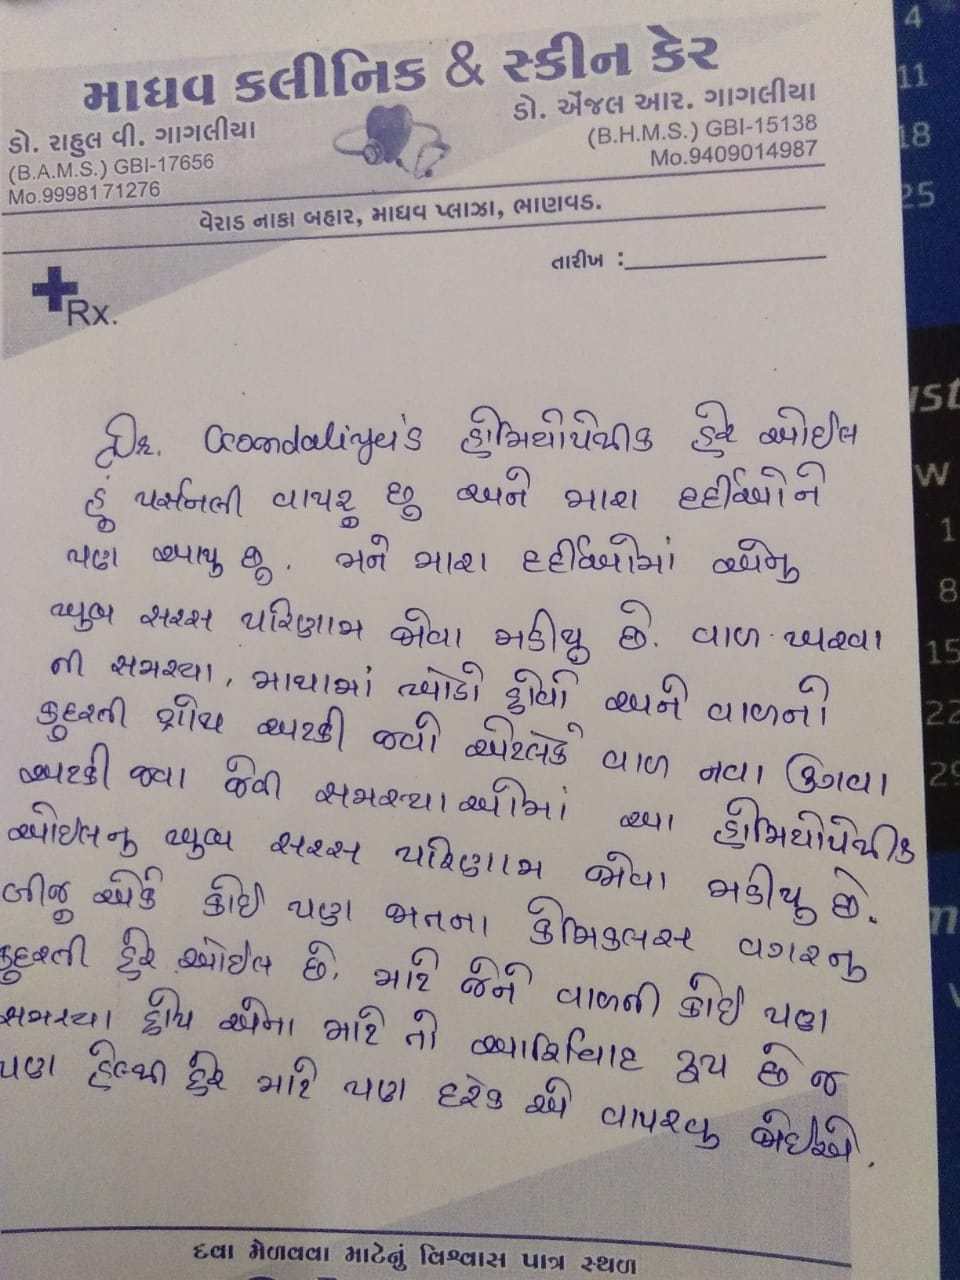 માધવ કલીનિક & સ્કીન કેર
ડો. રાહુલ વી. ગાગલીયા
(B.A.M.S.) GBI-17656
Mo.9998171276
ડો. એંજલ આર. ગાગલીયા
(B.H.M.S.) GBI-15138
Mo.9409014987
વેરાડ નાકા બહાર, માધવ પ્લાઝા, ભાણવડ.
તારીખ :
Rx.
Dr. Gondaliya's હોમિયોપેથીક હેર ઓઈલ
હું પર્સનલી વાપરૂ છુ અને મારા દર્દીઓને
પણ આપુ છુ. મને મારા દર્દીઓમાં એનુ
ખુબ સરસ પરિણામ જોવા મળીયુ છે. વાળ ખરવા
ની સમસ્યા, માથામાં ખોડો હોવો અને વાળનો
કુદરતી ગ્રોથ અટકી જવો એટલેકે વાળ નવા ઉગવા
અટકી જવા જેવી સમસ્યાઓમાં આ હોમિયોપેથીક
ઓઈલનુ ખુબ સરસ પરિણામ જોવા મળીયુ છે.
બીજુ એકે કોઈ પણ જાતના કેમિકલસ વગરનુ
કુદરતી હેર ઓઈલ છે. માટે જેને વાળની કોઈ પણ
સમસ્યા હોય એના માટે તો આર્શિવાદ રૂપ છે જ
પણ હેલ્થી હેર માટે પણ દરેક એ વાપરવુ જોઈએ.
દવા મેળવવા માટેનું વિશ્વાસ પાત્ર સ્થળ
4
11
18
25
ust
W
1
8
15
22
29